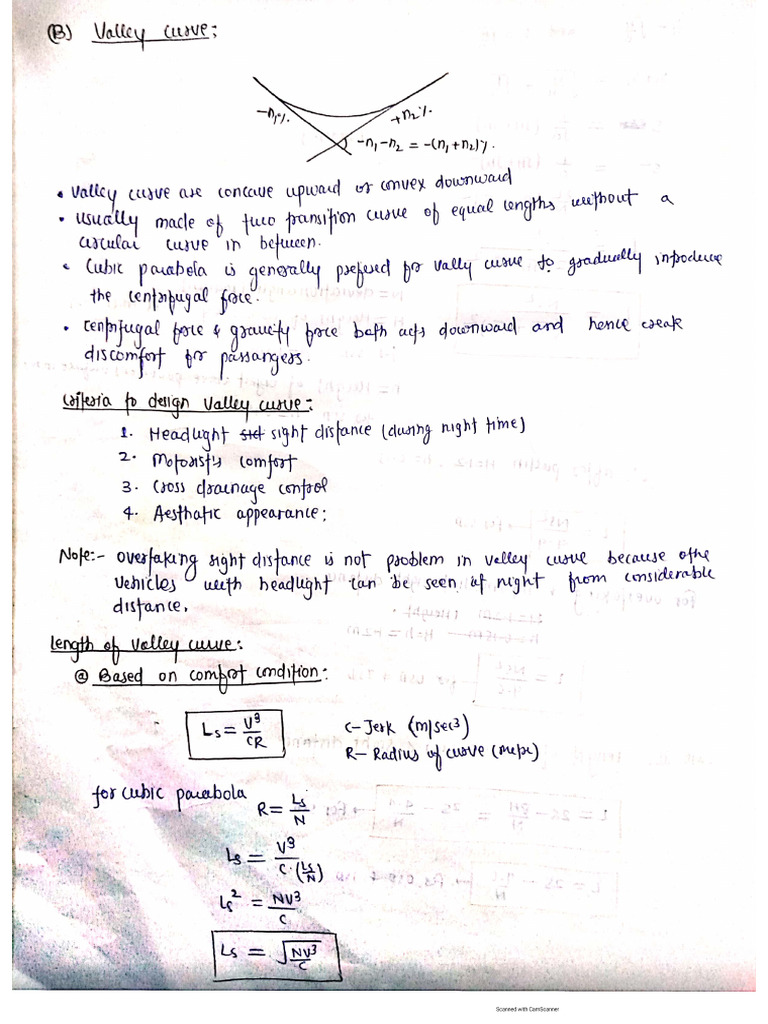 (B) Valley curve:
-n₁%
+n₂%
-n₁-n₂ = -(n₁+n₂)%.
• Valley curve are concave upward or convex downward
• usually made of two transition curve of equal lengths without a
circular curve in between.
• Cubic parabola is generally prefered for vally curve to gradually introduce
the centrifugal force.
• centrifugal force & gravity force both acts downward and hence creak
discomfort for passangers.
criteria to design valley curve:
1. Headlight sight distance (during night time)
2. Motorist's comfort
3. cross drainage control
4. Aesthatic appearance;
Note:- overtaking sight distance is not problem in valley curve because othe
vehicles with headlight can be seen at night from considerable
distance.
Length of valley curve:
@ Based on comfort condition:
Ls = V³/CR
C- Jerk (m/sec³)
R- Radius of curve (metre)
for cubic parabola
R = Ls/N
Ls = V³/C·(Ls/N)
Ls² = NV³/C
Ls = √NV³/C
Scanned with CamScanner